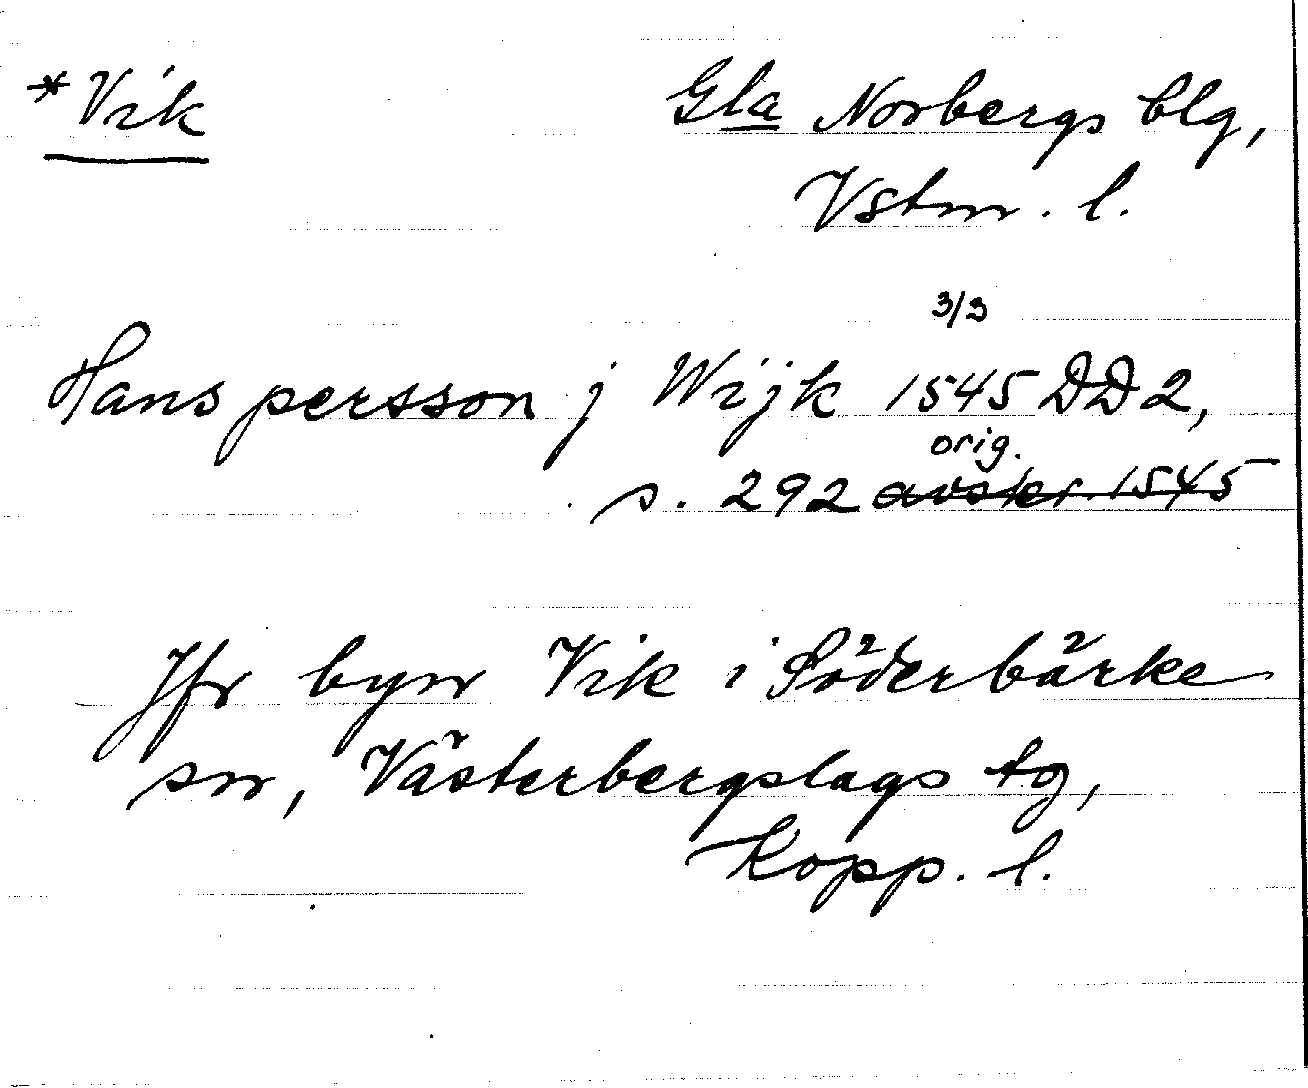 *Vik
Gla Norbergs blg,
Vstm. l.
3/3
Hans persson j Wijk 1545 DD2,
orig.
s. 292 avskr. 1545
Jfr byn Vik i Söderbärke
sn, Västerbergslags tg,
Kopp. l.